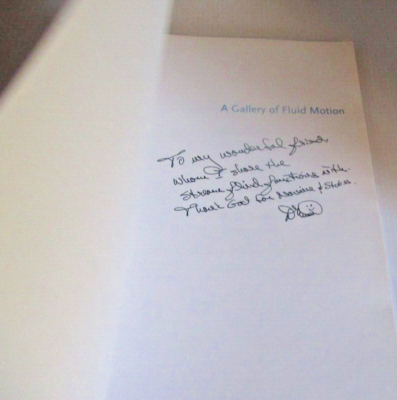 A Gallery of Fluid Motion
To my wonderful friend
whom I share the
stream fluid functions with.
Thank God for Navier & Stokes.